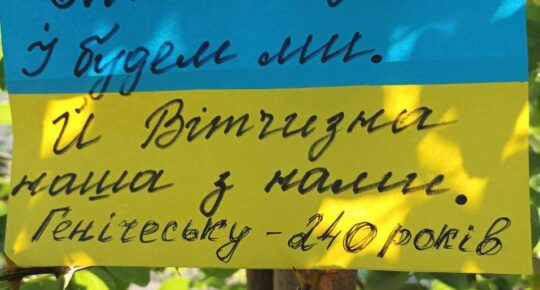 І будем ми.
Й Вітчизна
наша з нами.
Генічеську - 240 років